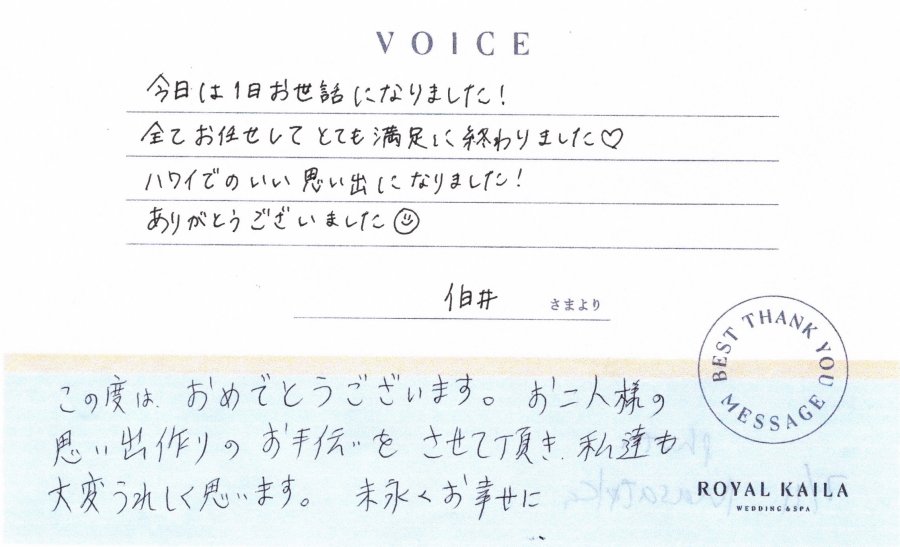 VOICE
今日は1日お世話になりました！
全てお任せしてとても満足に終わりました♡
ハワイでのいい思い出になりました！
ありがとうございました☺
伯井 さまより
BEST THANK YOU MESSAGE
この度は、おめでとうございます。お二人様の
思い出作りのお手伝いをさせて頂き、私達も
大変うれしく思います。 末永くお幸せに
ROYAL KAILA
WEDDING & SPA